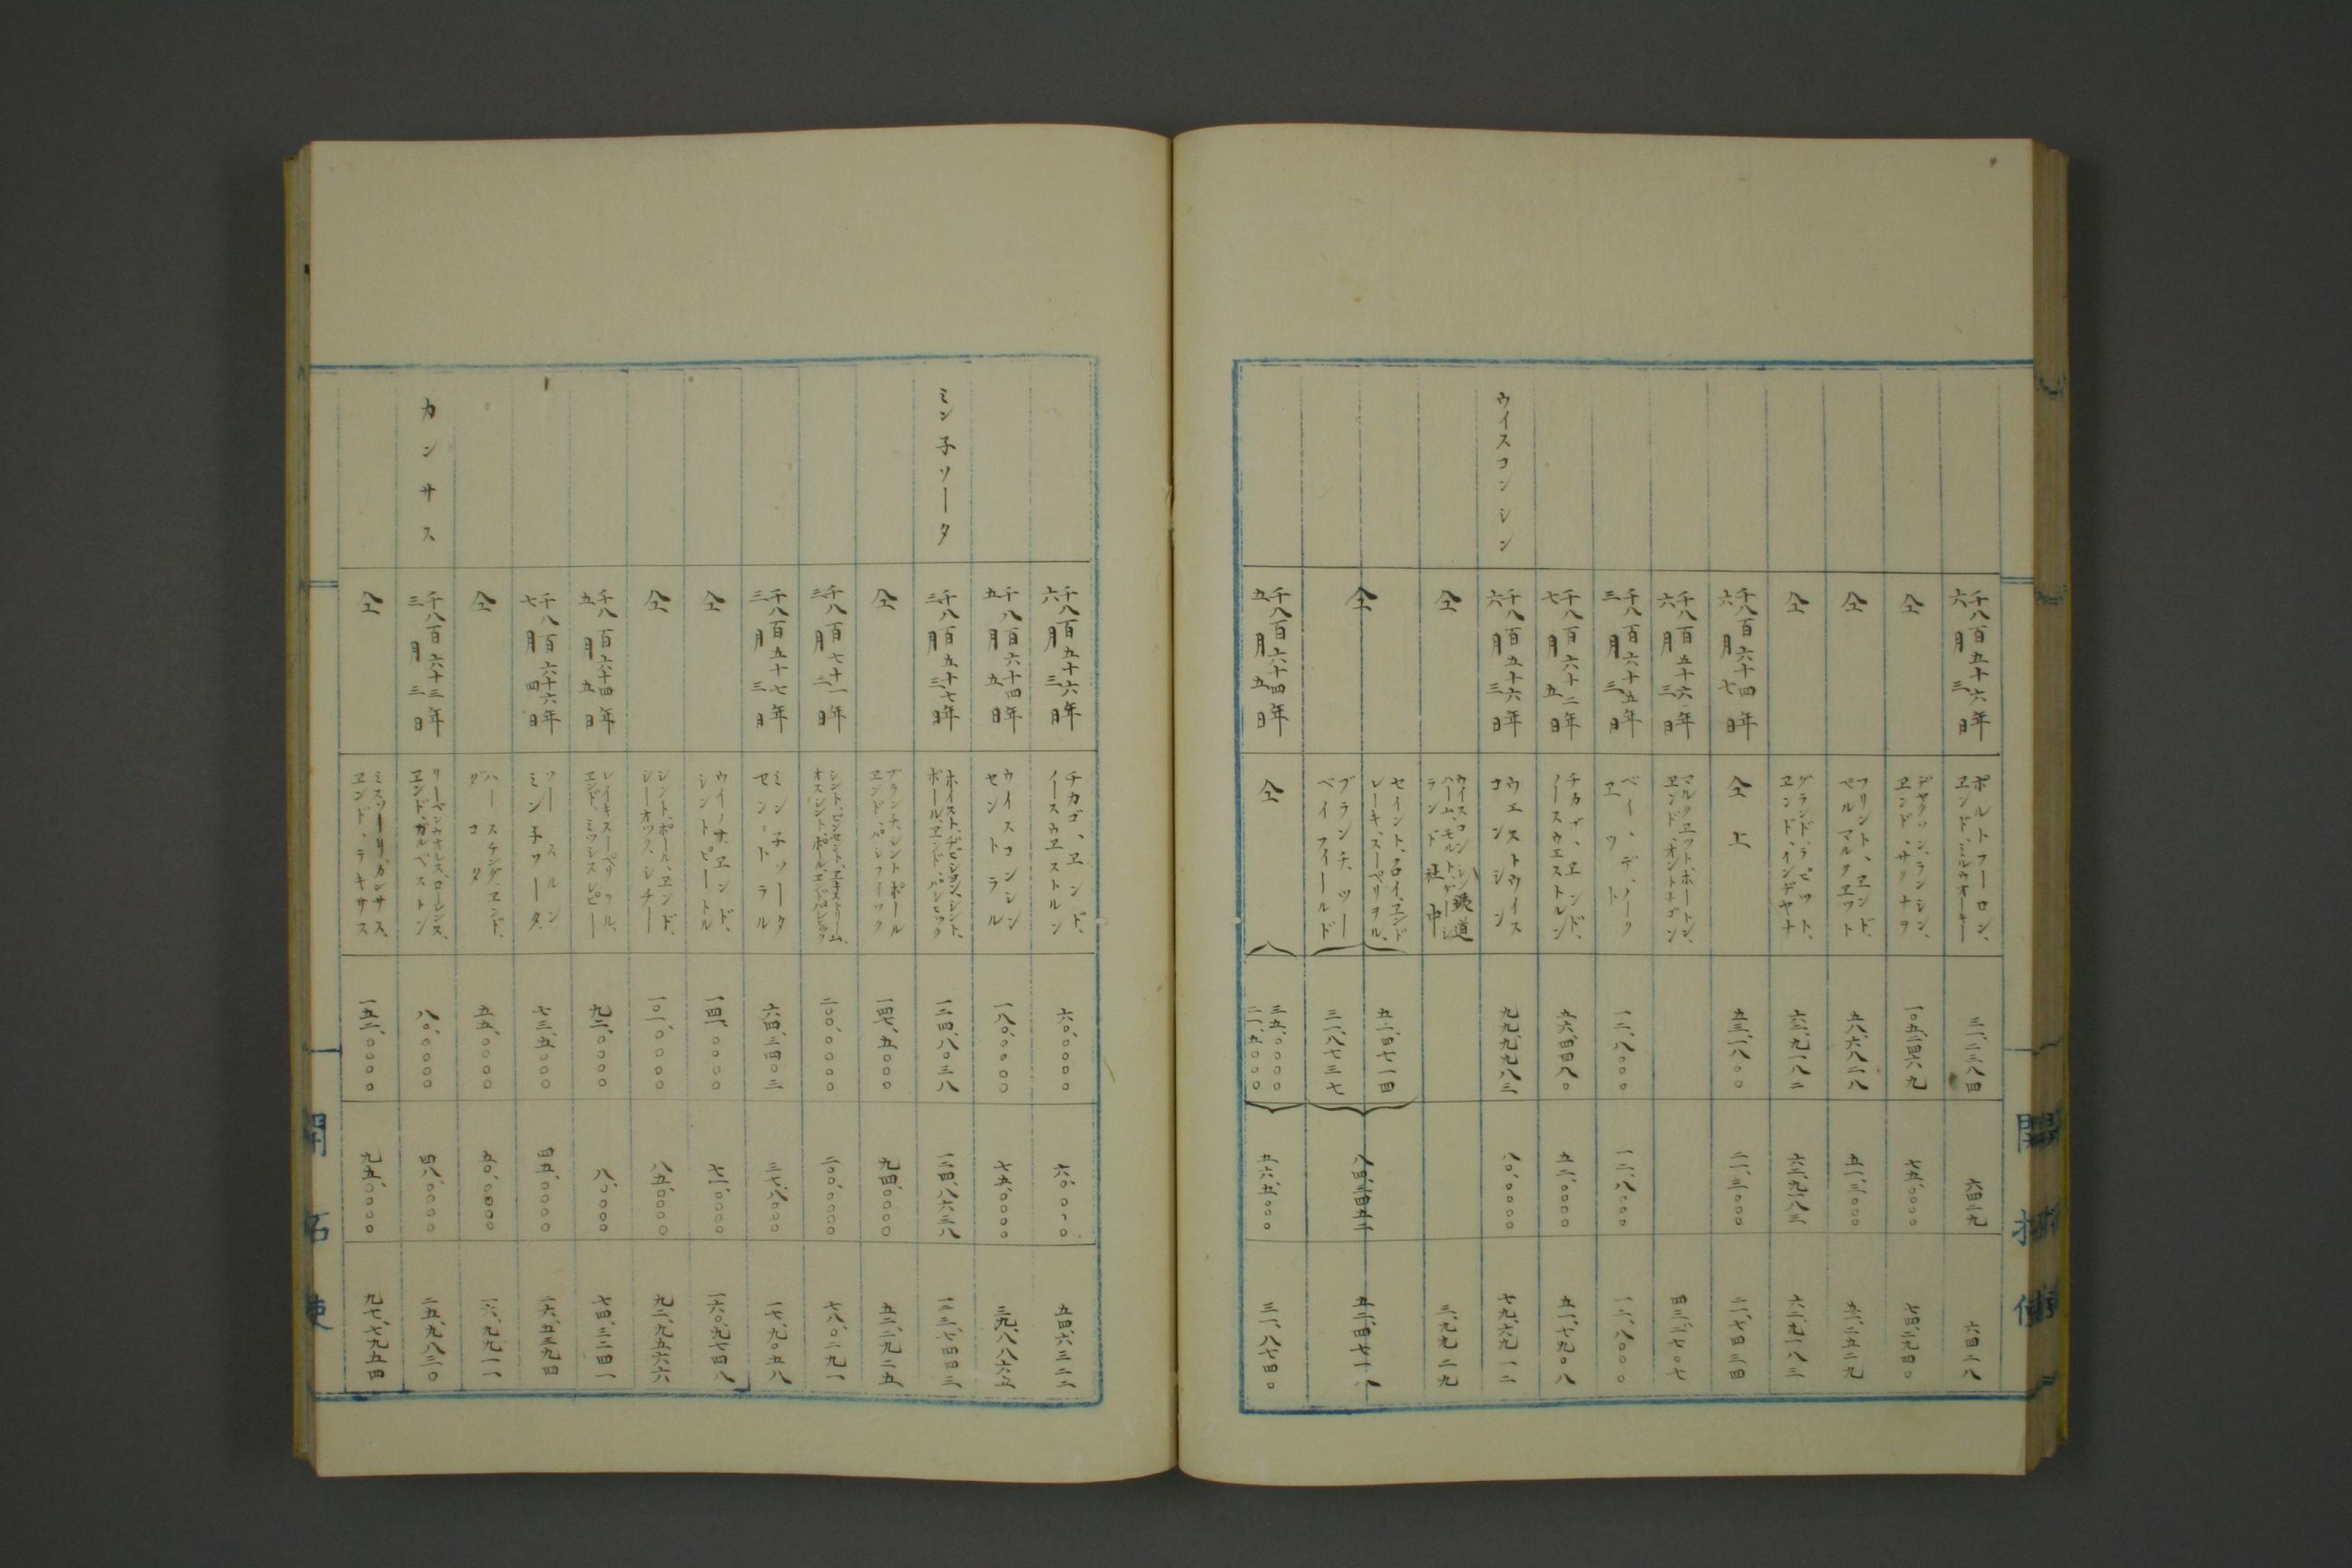 千八百五十六年六月三日
ポルトフーロン、エンド、ミルウオーキー
三一、二三八四
六四二九
六四二八
仝
ヂヤクソン、ランシン、エンド、サクナヲ
一〇五、二四六九
七五、〇〇〇〇
七四、二九四〇
仝
フリント、エンド、ペルマルクエツト
五八、六八二八
五一、三〇〇〇
五一、二五二九
仝
グランド、ラピツト、エンド、インヂヤナ
六二、九一八二
六二、九一八二
六二、九一八二
千八百六十四年六月七日
仝上
五三、一八〇〇
二一、三〇〇〇
二一、七四三四
千八百五十六年六月三日
マルクエツト、ホートン、エンド、オントナゴン
四三、二七〇七
千八百六十五年三月三日
ベイ、デ、ノーク エ ツト
一二、八〇〇〇
一二、八〇〇〇
一二、八〇〇〇
千八百六十二年七月五日
チカゴ、エンド、ノースウエストルン
五六、四四八〇
五二、〇〇〇〇
五一、七九〇八
ウイスコンシン
千八百五十六年六月三日
ウエストウイスコンシン
九九、九九八三
八〇、〇〇〇〇
七九、六九一二
仝
ウイスコンシン鉄道ハーム、モルトゲーシランド社中
三、九九二九
仝
セイント、クロイ、エンドレーキ、スーペリヲル、
五二、四七一四
ブランチ、ツーベイフイールド
三一、八七三七
八四、三四五二
五二、四七一八
千八百六十四年五月五日
仝
三五、〇〇〇〇
二一、五〇〇〇
五六、五〇〇〇
三一、八七四〇
千八百五十六年六月三日
チカゴ、エンド、ノースウエストルン
六〇、〇〇〇〇
六〇、〇〇〇
五四、六三二二
千八百六十四年五月五日
ウイスコンシンセントラル
一八〇、〇〇〇〇
七五、〇〇〇〇
三九、八八六五
ミン子ソータ
千八百五十七年三月三日
ホイスト、デビシヨン、シントポール、エンド、パシヒツク
一二四、八〇三八
一二四、八六三八
一二三、七四四三
仝
ブランチ、シントポールエンド、パシフーツク
一四七、五〇〇〇
九四、〇〇〇〇
五二、二九二五
千八百七十一年三月三日
シント、ビンセント、エキストリーム、オスシントポール、エンドパシヒツク
二〇〇、〇〇〇〇
二〇〇、〇〇〇〇
七八、〇二九一
千八百五十七年三月三日
ミン子ソータセントラル
六四、三四〇三
三七、八〇〇〇
一七、九〇五八
仝
ウイノナ、エンド、シントピートル
一四一、〇〇〇〇
七二、〇〇〇〇
一六〇、九七四八
仝
シント、ポール、エンド、シーオツク、シチー
一〇一、〇〇〇〇
八五、〇〇〇〇
九二、九五六六
千八百六十四年五月五日
レイキスーペリヲル、エンド、ミツシスレピー
九二、〇〇〇〇
八、〇〇〇〇
七四、三二四一
千八百六十六年七月四日
ソースルンミン子ソータ
七三、五〇〇〇
四五、〇〇〇〇
二六、五二九四
仝
ハースチング、エンド、ダコタ
五五、〇〇〇〇
五〇、〇〇〇〇
一六、九九一一
カンサス
千八百六十三年三月三日
リーベンウオルス、ローレンス、エンド、ガルベストン
八〇、〇〇〇〇
四八、〇〇〇〇
二五、九八三〇
仝
ミスソーリ、カンサス、エンド、ラキサス
一五二、〇〇〇〇
九五、〇〇〇〇
九七、七九五四
開拓使